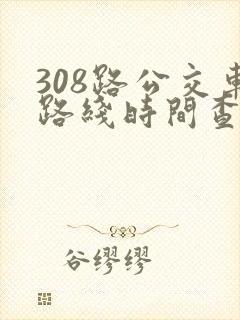 308路公交車
路綫時間查
谷缪缪